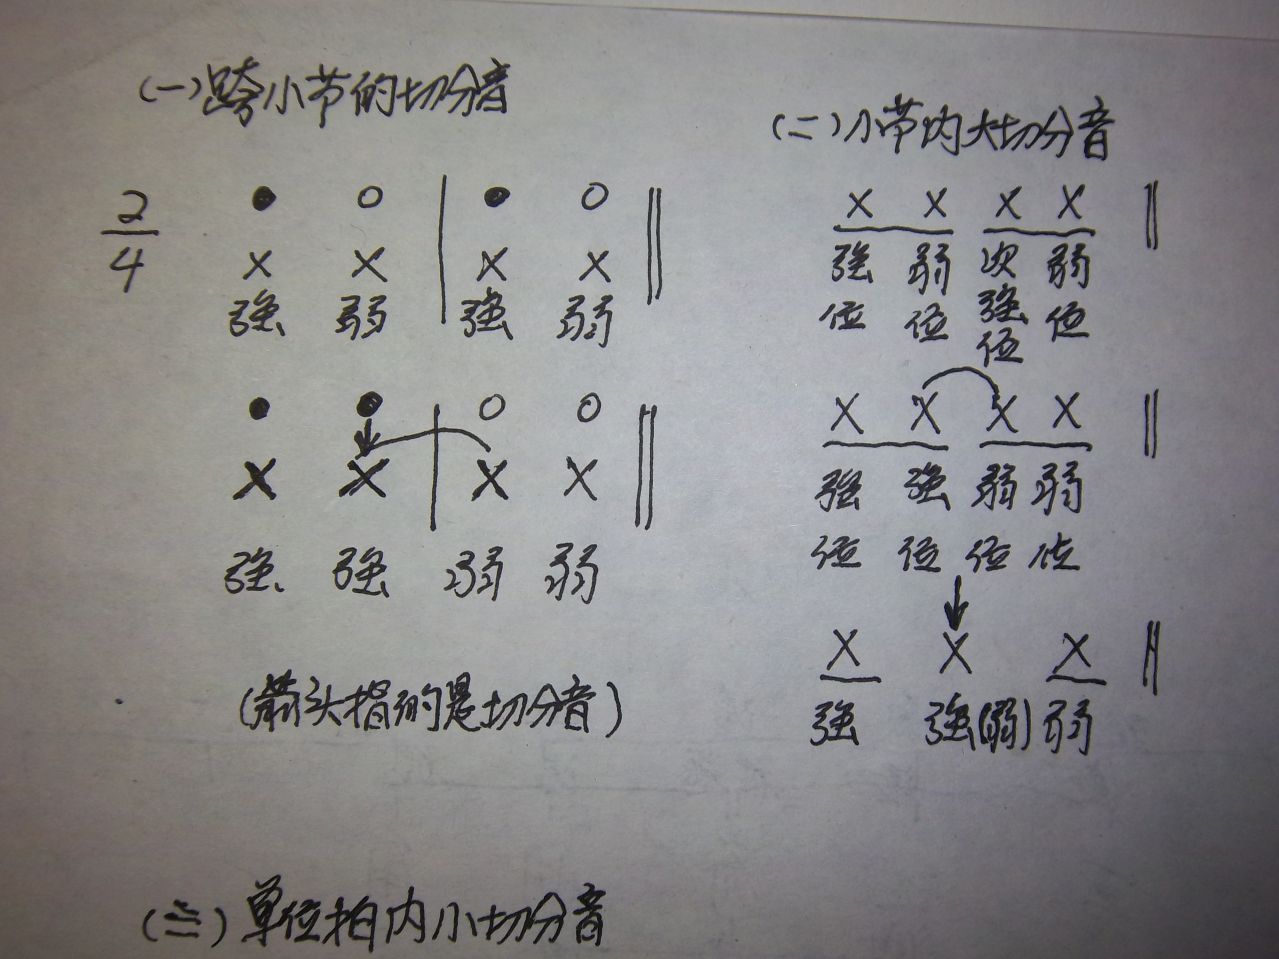 (一)跨小节的切分音
2
4
● ○ | ● ○ ‖
X X X X
强 弱 强 弱
● ● | ○ ○ ‖
X X X X
强 强 弱 弱
(箭头指的是切分音)
(二)小节内大切分音
X X X X ‖
强 弱 次 弱
位 位 强 位
位
X X X X ‖
强 强 弱 弱
位 位 位 位
X X X ‖
强 强(弱) 弱
(三)单位拍内小切分音